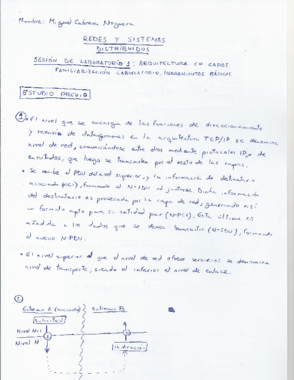 Nombre: Miguel Cabrera Noguera
REDES Y SISTEMAS
DISTRIBUIDOS
SESIÓN DE LABORATORIO 1: ARQUITECTURA EN CAPAS
FAMILIARIZACIÓN LABORATORIO. HERRAMIENTAS BÁSICAS
ESTUDIO PREVIO
1 • El nivel que se encarga de las funciones de direccionamiento
y reenvío de datagramas en la arquitectura TCP/IP se denomina
nivel de red, comunicándose entre ellos mediante protocolos IP, de
enrutados, que luego se transmite por el resto de las capas.
• Se recibe el PDU del nivel superior, y la información de destinatario
formando el N-SDU al juntarse. Dicha información
del destinatario es procesada por la capa de red, generando así
un formato apto para su entidad par (N-PCI). Esta última es
añadida a los datos que se desea transmitir (N-SDU), formando
el nuevo N-PDU.
• El nivel superior al que el nivel de red ofrece servicios se denomina
nivel de transporte, siendo el inferior el nivel de enlace.
2
Sistema A Sistema B
Solicitud
Nivel N+1
Nivel N
Indicación